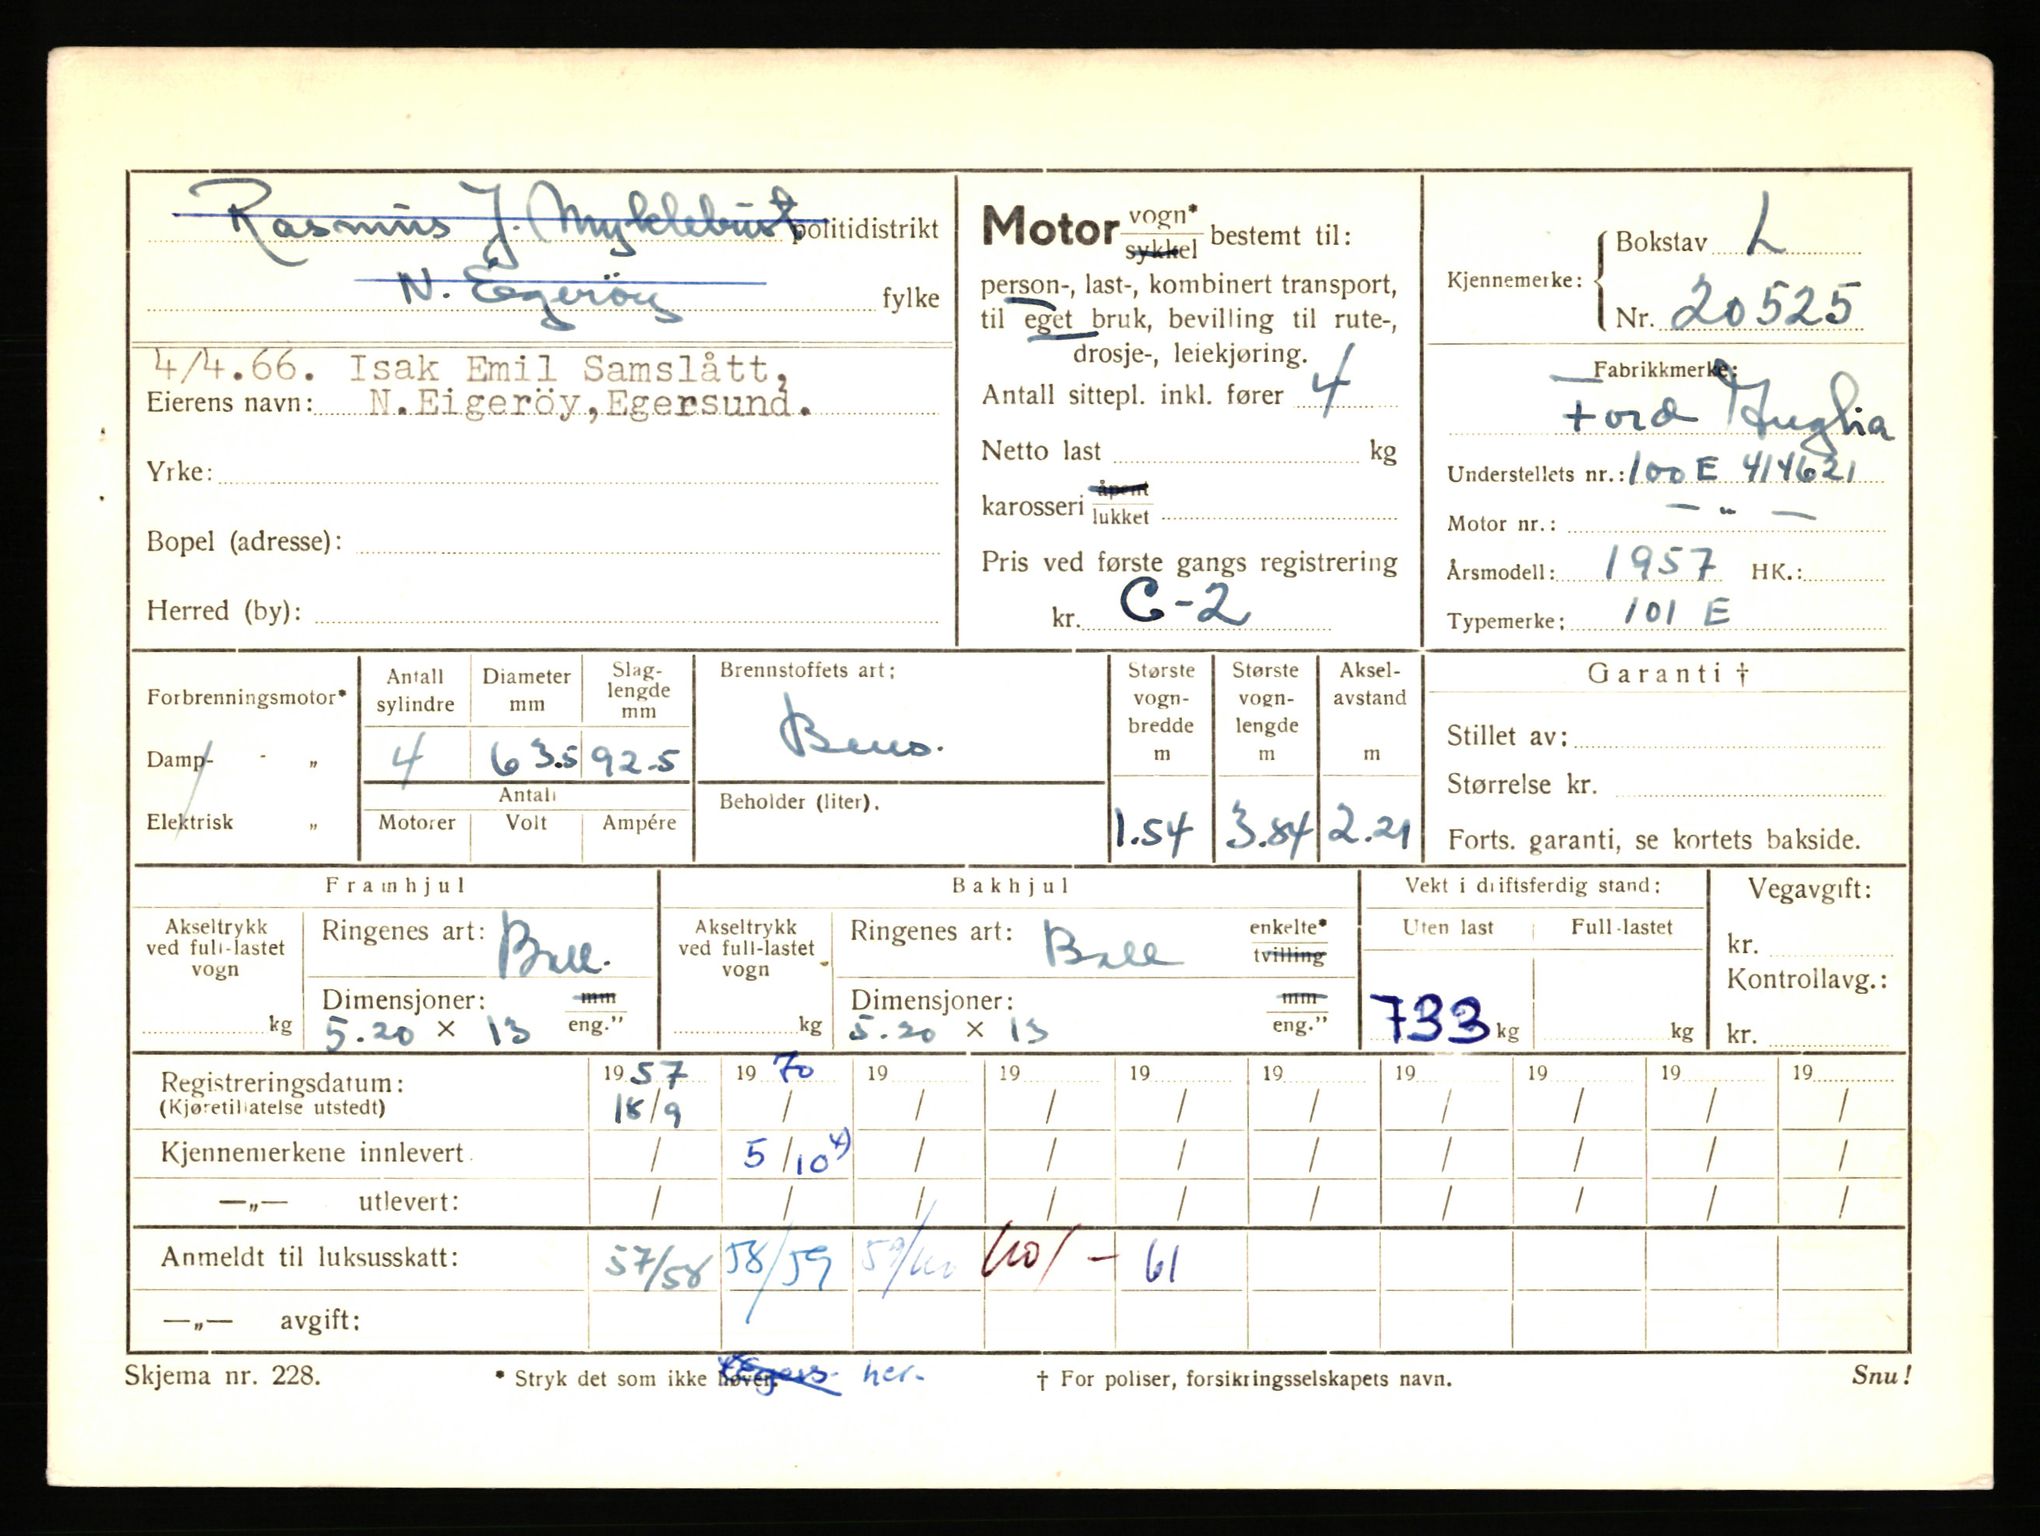 Rasmus J. Myklebust politidistrikt
N. Egeröy fylke
4/4.66. Isak Emil Samslått,
Eierens navn: N.Eigeröy,Egersund.
Yrke:
Bopel (adresse):
Herred (by):
Motor vogn* sykkel bestemt til:
person-, last-, kombinert transport,
til eget bruk, bevilling til rute-,
drosje-, leiekjøring.
Antall sittepl. inkl. fører 4
Netto last kg
karosseri åpent lukket
Pris ved første gangs registrering
kr. C-2
Kjennemerke: Bokstav L
Nr. 20525
Fabrikkmerke:
Ford Anglia
Understellets nr.: 100 E 414621
Motor nr.: — „ —
Årsmodell: 1957 HK.:
Typemerke: 101 E
Forbrenningsmotor*
Damp- - „
Elektrisk „
Antall sylindre
Diameter mm
Slag-lengde mm
4 63.5 92.5
Antall
Motorer Volt Ampére
Brennstoffets art:
Bens.
Beholder (liter).
Største vogn-bredde m
1.54
Største vogn-lengde m
3.84
Aksel-avstand m
2.21
Garanti †
Stillet av:
Størrelse kr.
Forts. garanti, se kortets bakside.
Framhjul
Akseltrykk
ved full-lastet
vogn
kg
Ringenes art: Ball.
Dimensjoner: mm
5.20 × 13 eng.”
Bakhjul
Akseltrykk
ved full-lastet
vogn
kg
Ringenes art: Ball enkelte* tvilling
Dimensjoner: mm
5.20 × 13 eng.”
Vekt i driftsferdig stand:
Uten last Full-lastet
733 kg kg
Vegavgift:
kr.
Kontrollavg.:
kr.
Registreringsdatum: 19 57 19 70 19 19 19 19 19 19 19 19
(Kjøretillatelse utstedt) 18/9 / / / / / / / / /
Kjennemerkene innlevert / 5/10 4) / / / / / / / /
—„— utlevert: / / / / / / / / / /
Anmeldt til luksusskatt: 57/58 58/59 59/60 60/- 61
—„— avgift:
Skjema nr. 228. * Stryk det som ikke høver. her. † For poliser, forsikringsselskapets navn. Snu!